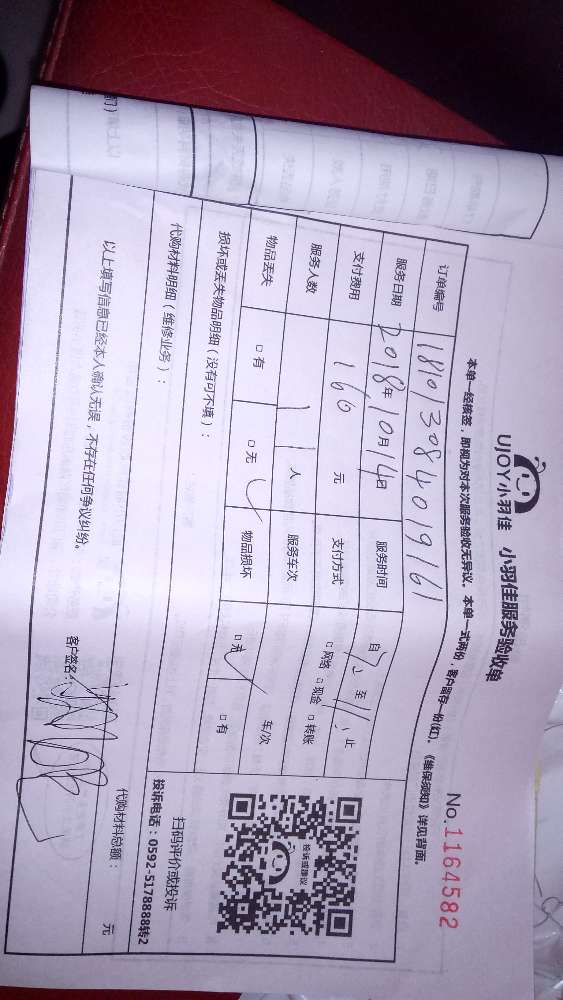 UJOY小羽佳 小羽佳服务验收单
No.1164582
本单一经核签，即视为对本次服务验收无异议。本单一式两份，客户留存一份(红)。《维保须知》详见背面。
订单编号 181013084019161
服务日期 2018年10月14日 服务时间 自 至11: 止
支付费用 160 元 支付方式 □网络 □现金 □转账
服务人数 1 人 服务车次 车/次
物品丢失 □有 □无 ✓ 物品损坏 □无 ✓ □有
损坏或丢失物品明细（没有可不填）：
代购材料明细（维修业务）：
投诉或建议
扫码评价或投诉
投诉电话：0592-5178888转2
代购材料总额： 元
以上填写信息已经本人确认无误，不存在任何争议纠纷。
客户签名：